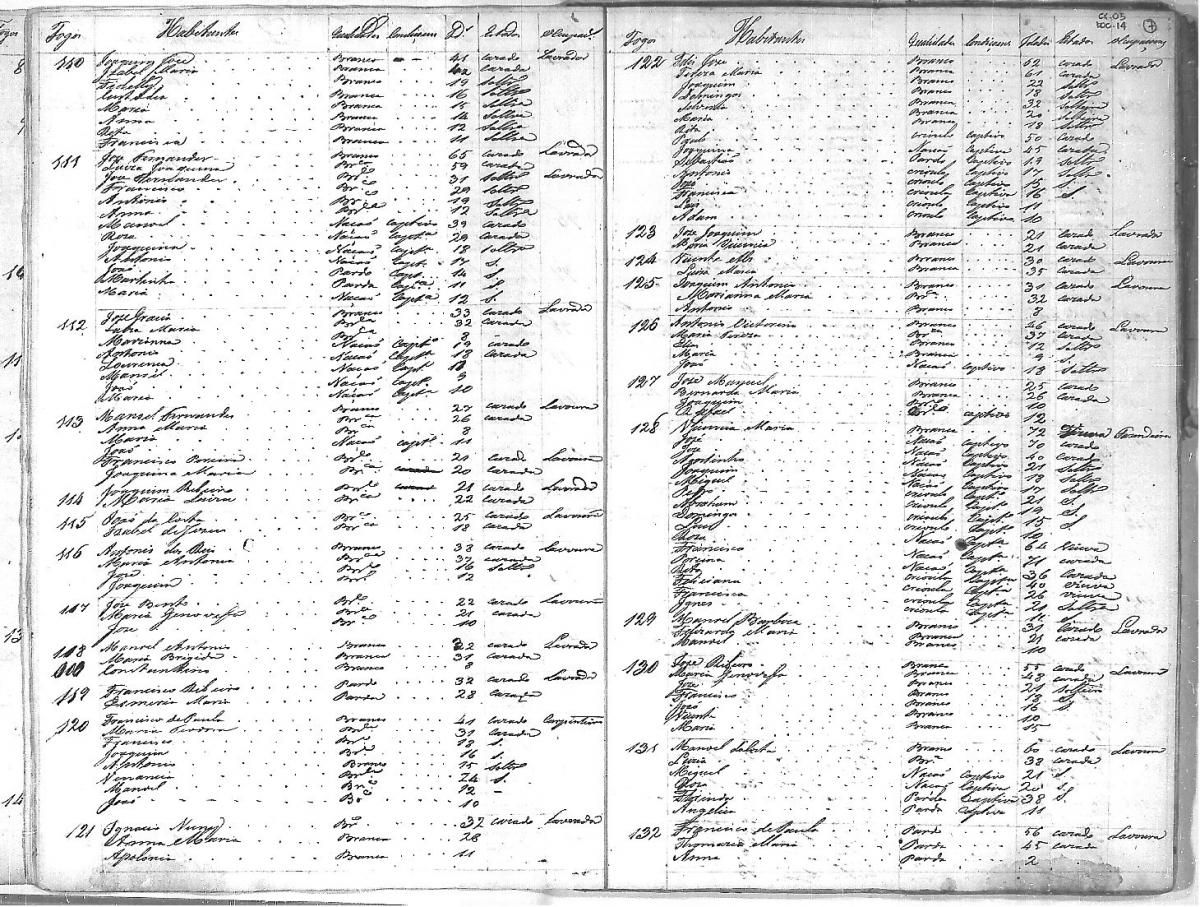 Fogos Habitantes Qualidades Condicoens Id.s Estados Occupaç.
110 Joaquim Joze Branco 41 cazado Lavrador
Izabel Maria Branca 42 cazada
Branco 19 Soltro
Branca 16 Soltra
Maria Branca 15 Soltra
Anna Branca 14 Soltra
Rita Branca 12 Soltra
Francisca Branca 11 Soltra
111 Joze Fernandes Branco 65 cazado Lavrador
Luiza Joaquinna Br.ca 59 cazada
Joze Fernandes Br.co 31 Soltro Lavrador
Francisco Br.co 29 Soltro
Antonio Br.co 19 Soltro
Anna Br.ca 12 Soltra
Manoel Nacaó captivo 39 cazado
Roza Nacaó Capt.a 29 cazada
Joaquinna Nacaó Capt.a 18 soltra
Antonio Nacaó Capt.o 17 S.
Joaó Pardo Capt.o 14 S.
Martinha Parda Capt.a 11 S.
Maria Nacaó Capt.a 12 S.
112 Joze Branco 33 cazado Lavrador
Maria Br.ca 32 cazada
Marianna Br.ca 8
Antonio Nacaó Capt.o 19 cazado
Lourença Nacaó Capt.a 18 cazada
Manoel Nacaó Capt.o 11
Joaó Nacaó Capt.o 9
Maria Nacaó Capt.a 10
113 Manoel Fernandes Branco 27 cazado Lavoura
Anna Maria Br.ca 26 cazada
Maria Br.ca 8
Joaó Nacaó capt.o 11
Francisco Pereira Br.co 21 cazado Lavoura
Joaquinna Maria Br.ca 20 cazada
114 Joaquim Ribeiro Br.co 21 cazado Lavrador
Maria Luiza Br.ca 22 cazada
115 Joaó da Costa Br.co 25 cazado Lavoura
Izabel de Jezus Br.ca 18 cazada
116 Antonio dos Reis Branco 38 cazado Lavoura
Maria Antonia Br.ca 37 cazada
Joze Br.co 16 Soltro
Joaquim Br.co 12
117 Joze Bento Br.co 22 cazado Lavoura
Maria Genoveffa Br.ca 21 cazada
Joze Br.co 10
118 Manoel Antonio Branco 32 cazado Lavrador
Maria Brigida Branca 31 cazada
Constantino Branco 8
119 Francisco Ribeiro Pardo 32 cazado Lavrador
Esmeria Maria Parda 28 cazada
120 Francisco de Paula Branco 41 cazado Carpenteiro
Maria Teodora Br.ca 31 cazada
Francisco Br.co 18 S.
Joaquim Br.co 16 S.
Antonio Branco 15 Soltro
Venancia Br.ca 24 S.
Manoel Br.co 12
Joaó Br.co 10
121 Ignacio Nunes Br.co 32 cazado Lavrador
Anna Maria Branca 28
Apolonia Branca 11
CX.05
DOC.14
7
Fogos Habitantes Qualidades Condicoens Idades Estados Occupaçoens
122 Joze Branco 62 cazado Lavrador
Tereza Maria Branca 61 cazada
Joaquim Branco 22 Soltro
Domingos Branco 18 Soltro
Branca 32 Solteira
Maria Branca 20 Solteira
Rita Branca 18 Soltra
crioulo captivo 50 cazado
Joaquinna Nacaó Captiva 45 cazada
Sebastiaó Pardo Captivo 19 Soltro
Antonio crioulo Captivo 17 Soltro
Joze crioulo Captivo 15 S.
Francisca crioula Captiva 16 S.
crioulo Captivo 11
Adam crioulo Captivo 10
123 Joze Joaquim Branco 21 cazado Lavrador
Maria Vicencia Branca 21 cazada
124 Vicente Branco 30 cazado Lavoura
Luiza Maria Branca 35 cazada
125 Joaquim Antonio Branco 31 cazado Lavoura
Marianna Maria Br.ca 32 cazada
Antonio Branco 8
126 Antonio Victorino Branco 46 cazado Lavoura
Maria Tereza Br.ca 37 cazada
Branco 12 Soltro
Maria Branca 9 S.
Joaó Nacaó captivo 18 Soltro
127 Joze Manoel Branco 25 cazado
Bernarda Maria Branca 26 cazada
Joaquim Br.co 10
Rafael captivo 12
128 Vicencia Maria Branca 72 Viuva
José Nacaó captivo 70 cazado
Joze Nacaó Captivo 40 cazado
Agostinho Nacaó Captivo 21 Soltro
Joaquim Nacaó Captivo 18 Soltro
Miguel Nacaó Captivo 11 Soltro
Pedro crioulo Capt.o 21 S.
Abraham crioulo Capt.o 19 S.
Domingos crioulo Capt.o 15 S.
Luis crioulo Capt.o 10
Roza Nacaó Capt.a 64 viuva
Francisca Nacaó Capt.a 71 cazada
Nacaó Capt.a 36 Cazada
Rita crioula Capt.a 40 viuva
Feliciana crioula Capt.a 26 viuva
Francisca crioula Capt.a 21 Soltra
Ignes crioula Capt.a 11 S.
129 Manoel Barboza Branco 31 cazado Lavrador
Maria Branca 21 cazada
Manoel Branco 10
130 Joze Ribeiro Branco 55 cazado Lavoura
Maria Genoveffa Branca 48 cazada
Joze Branco 21 Solteiro
Francisco Branco 18 S.
Joaó Branco 16 S.
Vicente Branco 10
Maria Branca 15
131 Manoel Branco 60 cazado Lavoura
Luzia Br.ca 38 cazada
Miguel Nacaó Captivo 21 S.
Roza Nacaó Captiva 20 S.
Florinda Parda Captiva 38 S.
Angelica Parda captiva 11
132 Francisco de Paula Pardo 56 cazado Lavoura
Thomazia Maria Parda 45 cazada
Anna Parda 2